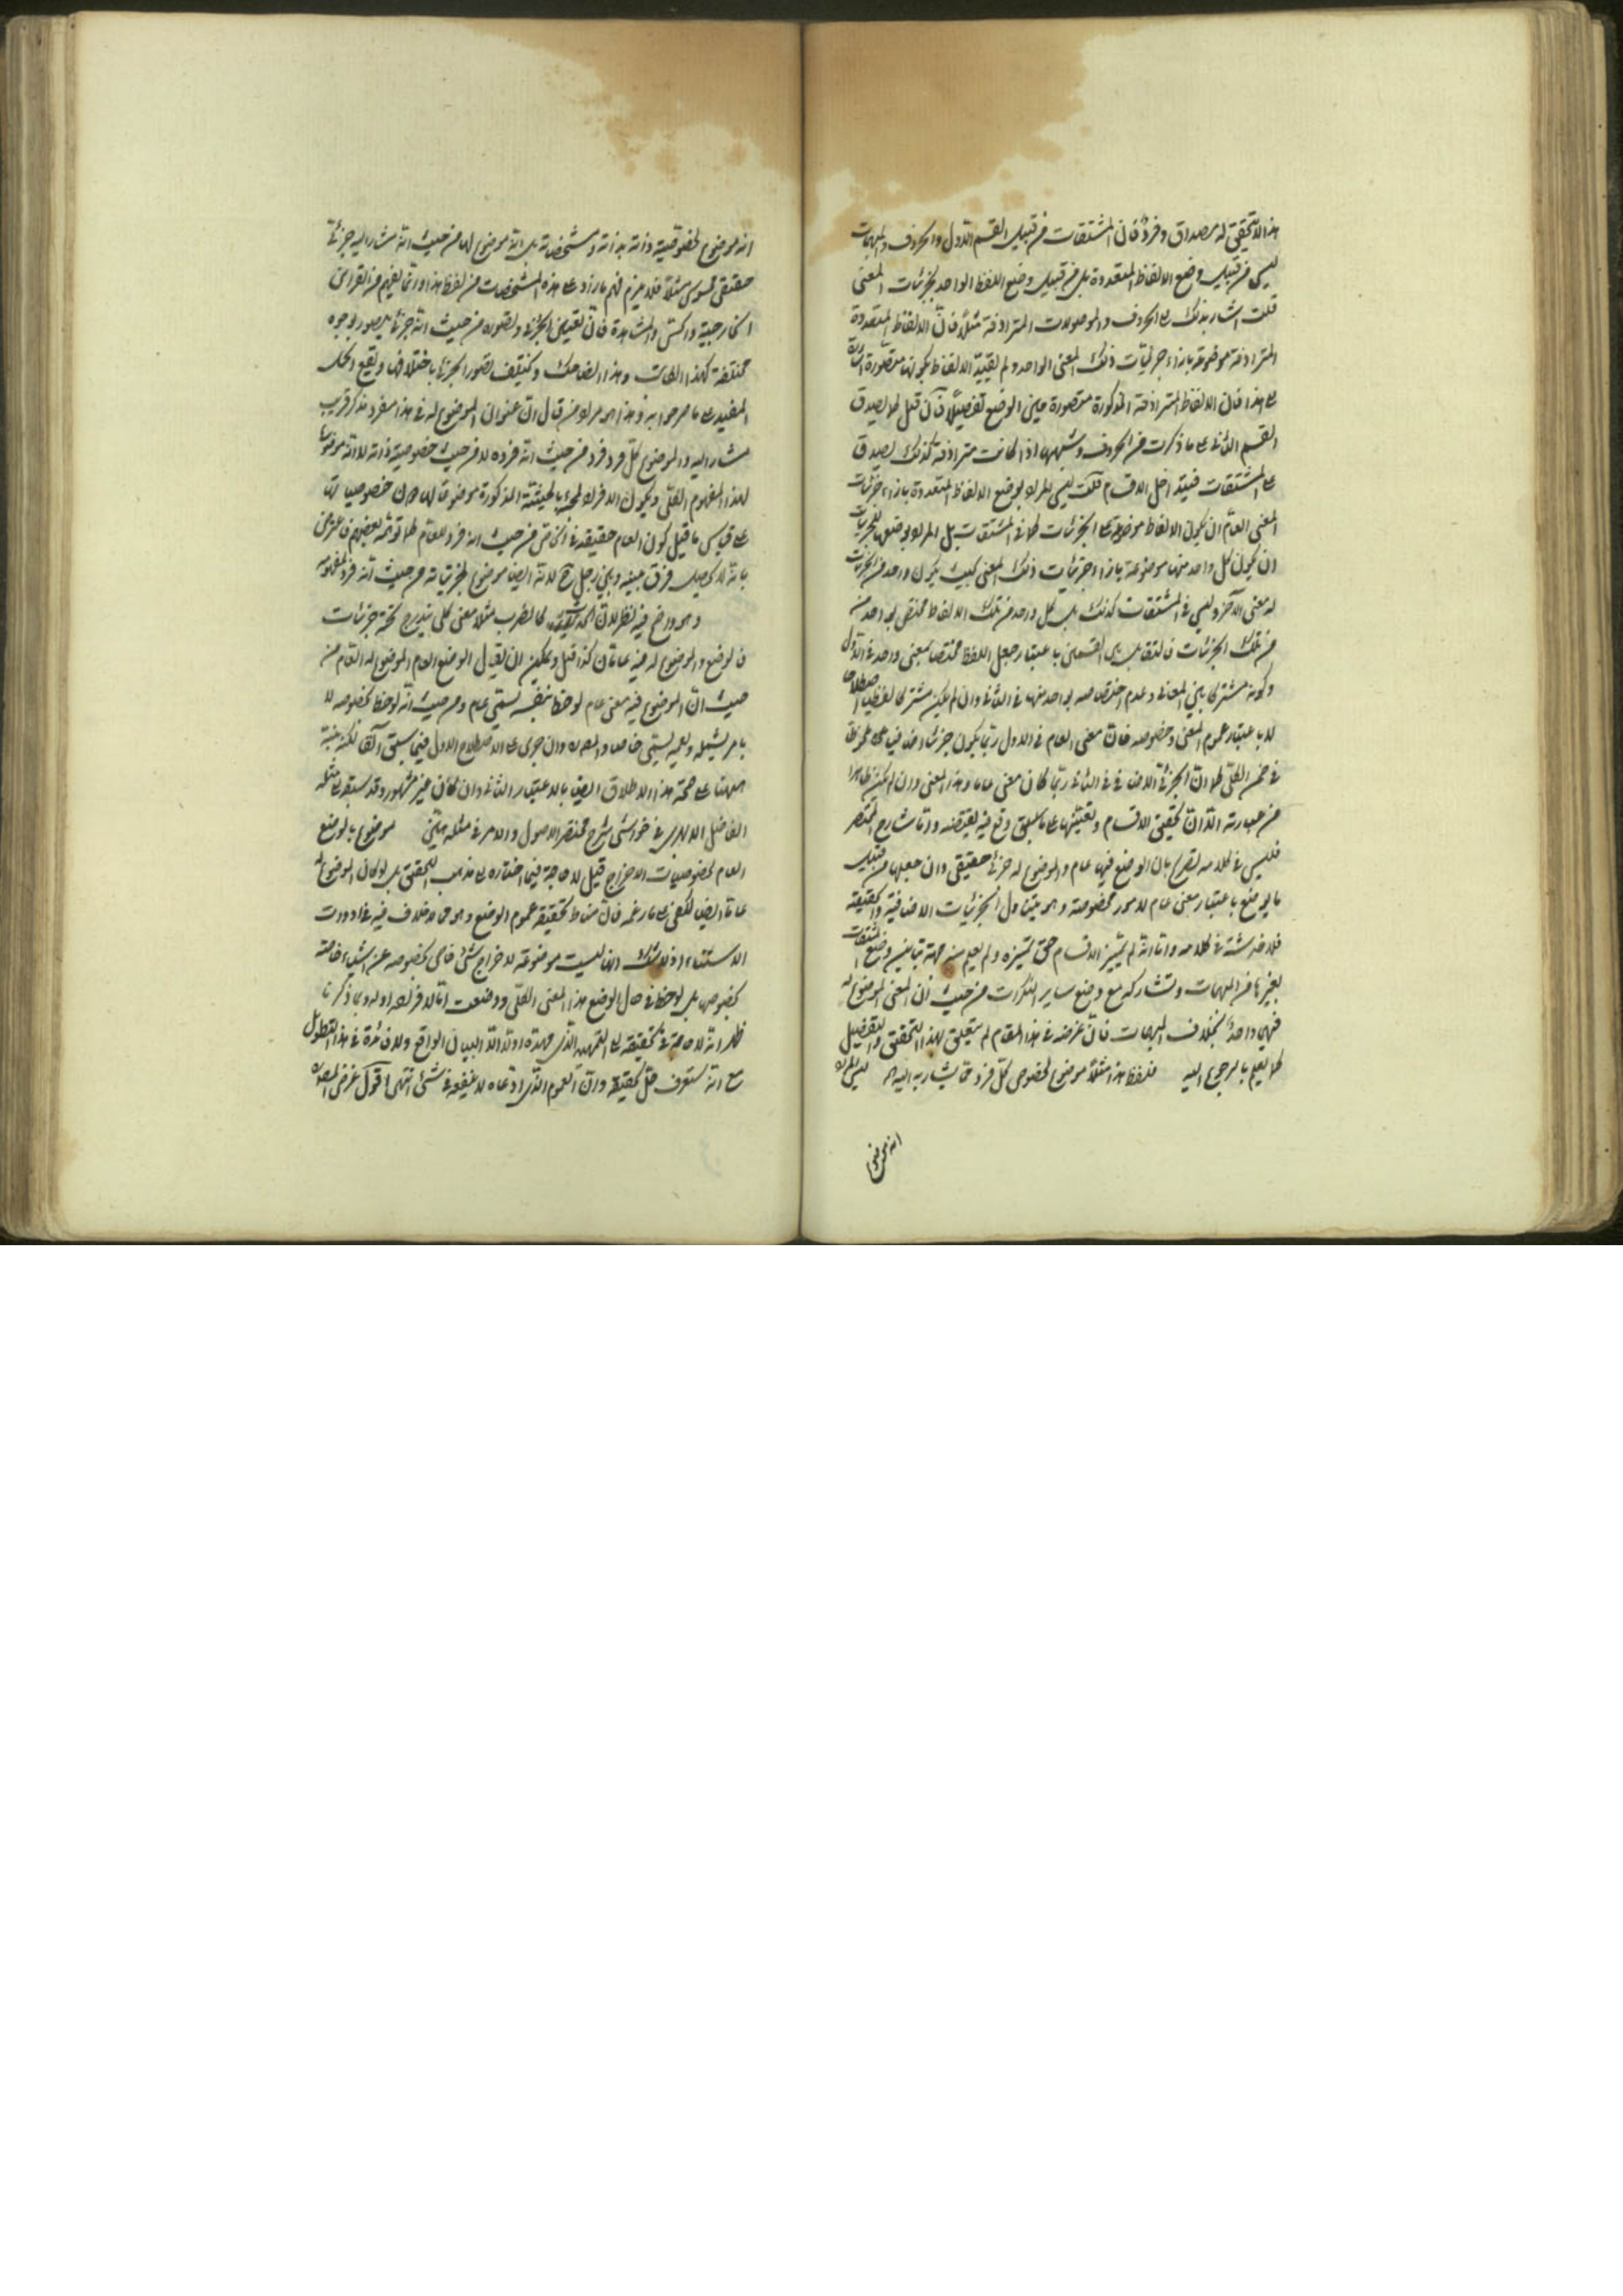 هذا لا تحقيق له مصداق وفرد فان المشتقات من قبيل القسم الاول والحروف والمبهمات
ليس من قبيل وضع الالفاظ المتعددة بل من قبيل وضع اللفظ الواحد لجزئيات المعنى
قلت اشار بذلك الى الحروف والموصولات المترادفة مثلا فان الالفاظ المتعددة
المترادفة موضوعة بازاء جزئيات ذلك المعنى الواحد ولم يقيد الالفاظ بكونها متصورة
على هذا فان الالفاظ المترادفة المذكورة متصورة حين الوضع تفصيلا فان قيل كما يصدق
القسم الثاني على ما ذكرت من الحروف وشبهها اذا كانت مترادفة كذلك يصدق
على المشتقات فيتداخل الاقسام قلت ليس المراد بوضع الالفاظ المتعددة بازاء جزئيات
المعنى العام ان يكون الالفاظ موضوعة الجزئيات كما في المشتقات بل المراد بوضعها للجزئيات
ان يكون كل واحد منها موضوعة بازاء جزئيات ذلك المعنى بحيث يكون واحد من الجزئيات
له معنى الآخر وليس في المشتقات كذلك بل كل واحد من تلك الالفاظ مختص بواحد
من تلك الجزئيات فالتقابل بين القسمين باعتبار جعل اللفظ مختصا بمعنى واحد في الاول
وكونه مشتركا بين المعاني وعدم اختصاصه بواحد منها في الثاني وان لم يكن مشتركا لفظيا اصطلاحا
لا باعتبار عموم المعنى وخصوصه فان معنى العام في الاول ربما يكون جزئيا اضافيا
في ضمن الكلي كما ان الجزئي الاضافي في الثاني ربما كان معنى عاما وهذا المعنى وان لم يكن ظاهرا
من عبارته الا ان تحقيق الاقسام وتعيينها على ما سبق وقع فيه يقتضه واما شارح المختصر
فليس في كلامه تصريح بان الوضع فيها عام والموضوع له جزئي حقيقي وان جعلها من قبيل
ما يوضع باعتبار معنى عام لامور مخصوصة وهو يتناول الجزئيات الاضافية والحقيقية
فلا خدشة في كلامه واما انه لم يتميز الاقسام حق تميزه ولم يعلم منه جهة تباين وضع المشتقات
لغيرها من المبهمات وتشاركه مع وضع ساير النكرات من حيث ان المعنى الموضوع له
فهي واحد بخلاف المبهمات فان غرضه في هذا المقام لم يتعلق بهذا التحقيق والتفصيل
كما يعلم بالرجوع اليه فلفظ هذا مثلا موضوع لخصوص كل فرد مما يشار به اليه ليس المراد
انه موضوع
انه موضوع لخصوصية ذاته بذاته ومشخصاته بل انه موضوع لها من حيث انه مشار اليه جزئي
حقيقي محسوس مثلا فلا يلزم فهم ما زاد على هذه المشخصات من لفظ هذا وانما يفهم من القرائن
الخارجية والحس والمشاهدة فان تعيين الجزئي وتصوره من حيث انه جزئي يتصور بوجوه
مختلفة كهذا الكاتب وهذا الضاحك وكيفية تصور الجزئي باختلافها ويقع الحكم
المفيد على ما صرحوا به وهذا هو مراد من قال ان عنوان الموضوع له في هذا مفرد مذكر قريب
مشار اليه والموضوع كل فرد فرد من حيث انه فرده لا من حيث خصوصية ذاته لا انه موضوع
لهذا المفهوم الكلي ويكون الافراد بالحيثية المذكورة موضوعا لها دون خصوصياتها
على قياس ما قيل كون العام حقيقة في الخاص من حيث انه فرد للعام كما توهمه بعضهم فاعترض
بانه لا يحصل فرق بينه وبين رجل ح لانه ايضا موضوع لجزئياته من حيث انه فرد لمفهومه
وهو واضح فيه نظر لان كالضرب مثلا معنى كلي يندرج تحته جزئيات
فالوضع والموضوع له فيه عامان كذا قيل ويمكن ان يقال الوضع العام والموضوع له العام من
حيث ان الموضوع فيه معنى عام لوحظ بنفسه يسمى عام ومن حيث انه لوحظ بخصوصه لا
بامر يشمله وغيره يسمى خاص والمص وان جرى على الاصطلاح الاول فيما سبق آنفا لكنه نبه
ههنا على صحة هذا الاطلاق ايضا بالاعتبار الثاني وان كان غير مشهور وقد سبقه الى مثله
الفاضل الابهري في حواشي شرح مختصر الاصول والامر في مثله هين موضوع بالوضع
العام لخصوصيات الاخراج قيل لا حاجة فيما اختاره الى مذهب المحقق بل لو كان الموضوع له
عاما ايضا لكفى على ما زعمه فان مناط تحقيقه عموم الوضع وهو مما لا خلاف فيه في ادوات
الاستثناء اذ لا شك انها ليست موضوعة لاخراج شيء خاص بخصوصه عن اشياء خاصة
بخصوصها بل لوحظ في حال الوضع هذا المعنى الكلي ووضعت اما لافراده او له وبما ذكرنا
ظهر انه لا حاجة في تحقيقه الى التمهيد الذي مهده اولا الا لبيان الواقع ولا فائدة في هذا التطويل
مع انه ستعرف حال تحقيقه وان العموم الذي ادعاه لا ينفعه في شيء انتهى اقول غرض المص